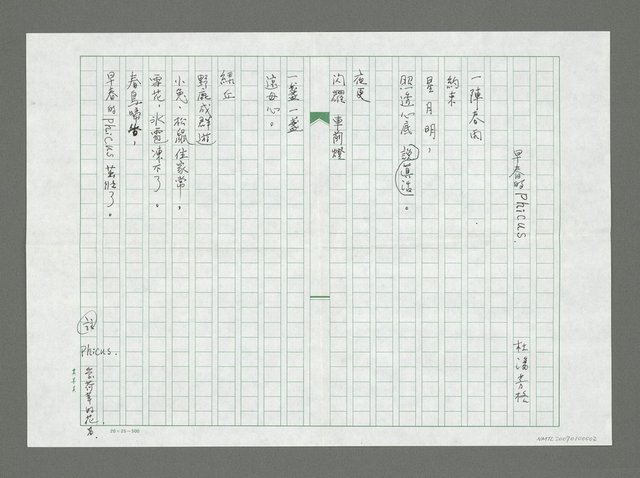 早春的Phicus.
杜潘芳格
一陣春雨
約束
星月明，
照透心底說真活。
夜更
閃耀 車前燈
一盞一盞
遠母心。
綠丘
野鹿成群遊
小兔、松鼠住家常，
霜花，冰雹凍不了。
春鳥啼
早春的Phicus 茁壯了。
註
Phicus.
的花名.
20×25=500
NMTL20090100502